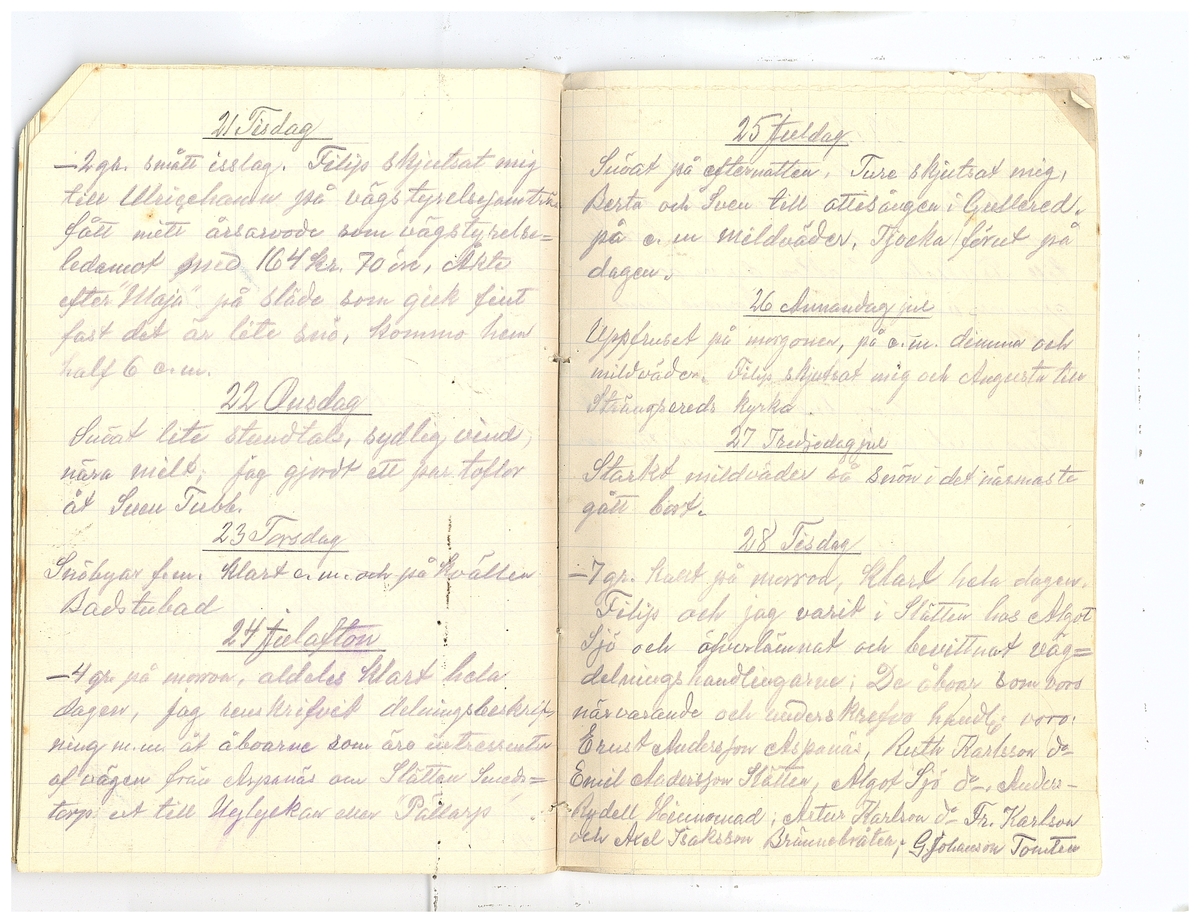 21 Tisdag
-2 gr. smått isslag. Filip skjutsat mig
till Ulricehamn på vägstyrelsesamträ
fått mitt årsarvode som vägstyrelse=
ledamot med 164 kr. 70 öre, Åkte
efter "Maja" på släde som gick fint
fast det är lite snö, kommo hem
half 6 e.m.
22 Onsdag
Snöat lite stundtals, sydlig vind,
nära milt; jag gjordt ett par tofflor
åt Sven Tubb.
23 Torsdag
Snöbyar f.m. klart e.m. och på kvällen
Badstubad
24 Julafton
-4 gr. på morron, aldeles klart hela
dagen, jag renskrifvit delningsbeskrif,
ning m.m. åt åboarne som äro intressenter
af vägen från Aspanäs om Slätten Smeds=
torp ut till Nylyckan eller Pållarp
25 Juldag
Snöat på efternatten. Ture skjutsat mig,
Berta och Sven till ottesången i Gullered.
på e.m mildväder, Tjocka förut på
dagen.
26 Annandag jul
Uppfruset på morgonen, på e.m. dimma och
mildväder. Filip skjutsat mig och Augusta till
Strängsereds kyrka.
27 Tredjedag jul
Starkt mildväder så snön i det närmaste
gått bort.
28 Tisdag
-7 gr. kallt på morron, klart hela dagen.
Filip och jag varit i Slätten hos Algot
Sjö och öfverlämnat och bevittnat väg=
delningshandlingarne; De åboar som voro
närvarande och underskrefvo handl; voro:
Ernst Andersson Aspanäs, Ruth Karlsson do
Emil Andersson Slätten, Algot Sjö do, Anders
Rydell Hennomad; Artur Karlson do Fr. Karlson
och Axel Isaksson Brännebråten, G. Johanson Tomten